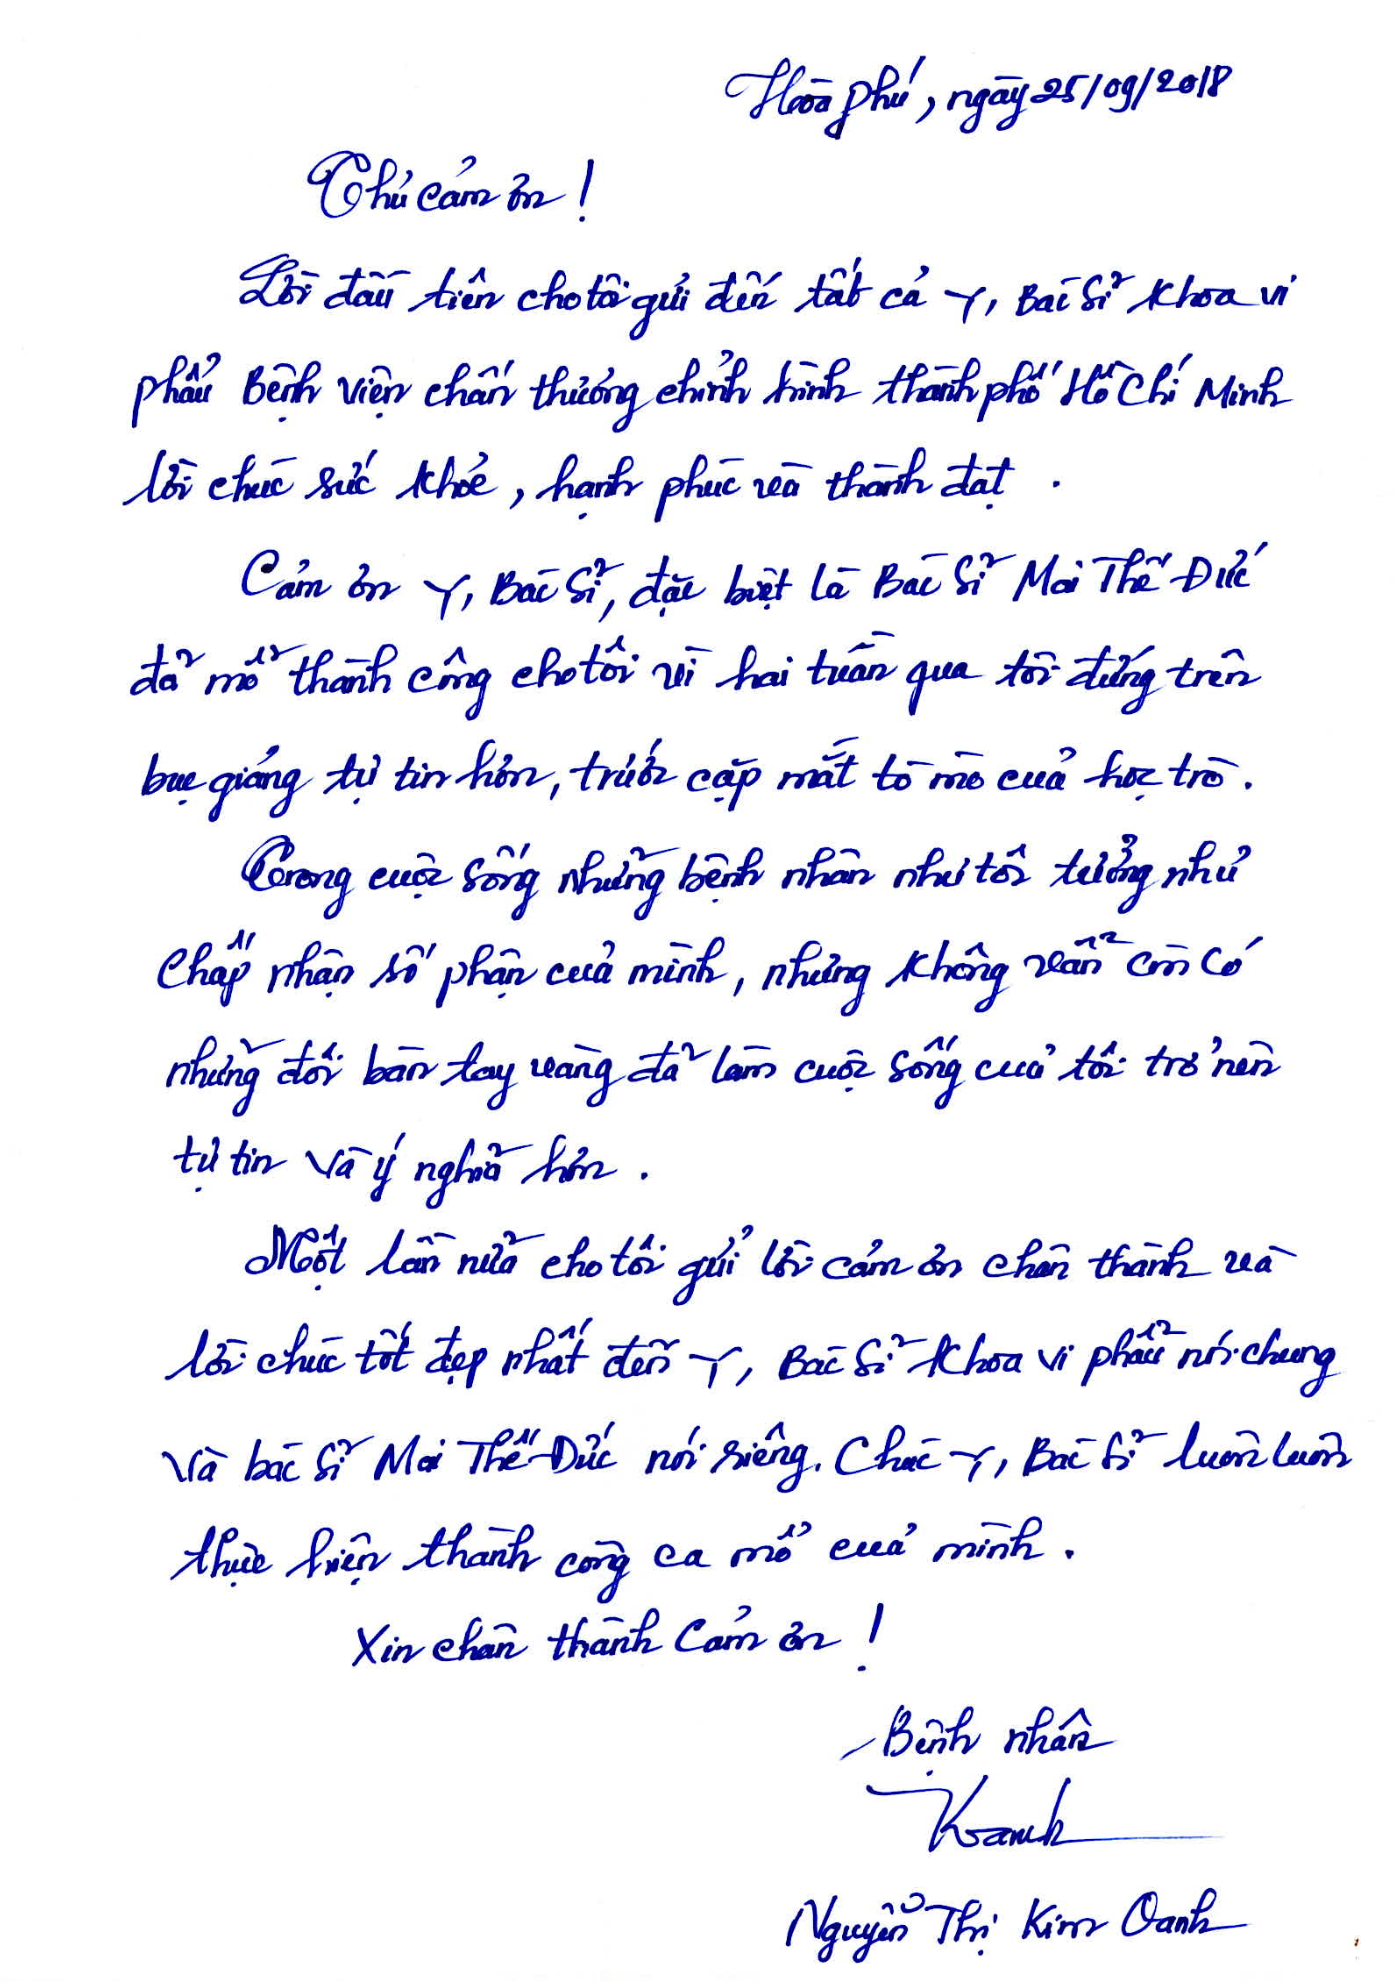 Hòa phú, ngày 25/09/2018
Thư cảm ơn!
Lời đầu tiên cho tôi gửi đến tất cả Y, Bác Sĩ khoa vi
phẩu Bệnh viện chấn thương chỉnh hình thành phố Hồ Chí Minh
lời chúc sức khỏe, hạnh phúc và thành đạt.
Cảm ơn Y, Bác Sĩ, đặc biệt là Bác Sĩ Mai Thế Đức
đã mổ thành công cho tôi vì hai tuần qua tôi đứng trên
bục giảng tự tin hơn, trước cặp mắt tò mò của học trò.
Trong cuộc sống những bệnh nhân như tôi tưởng như
chấp nhận số phận của mình, nhưng không vẫn còn có
những đôi bàn tay vàng đã làm cuộc sống của tôi trở nên
tự tin và ý nghĩa hơn.
Một lần nữa cho tôi gửi lời cảm ơn chân thành và
lời chúc tốt đẹp nhất đến Y, Bác Sĩ khoa vi phẩu nói chung
và bác sĩ Mai Thế Đức nói riêng. Chúc Y, Bác Sĩ luôn luôn
thực hiện thành công ca mổ của mình.
Xin chân thành Cảm ơn!
Bệnh nhân
Nguyễn Thị Kim Oanh